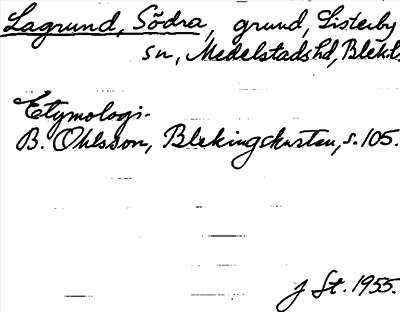 Lagrund, Södra, grund, Listerby
sn, Medelstads hd, Blek.l.
Etymologi.
B. Ohlsson, Blekingskusten, s. 105.
J St. 1955.